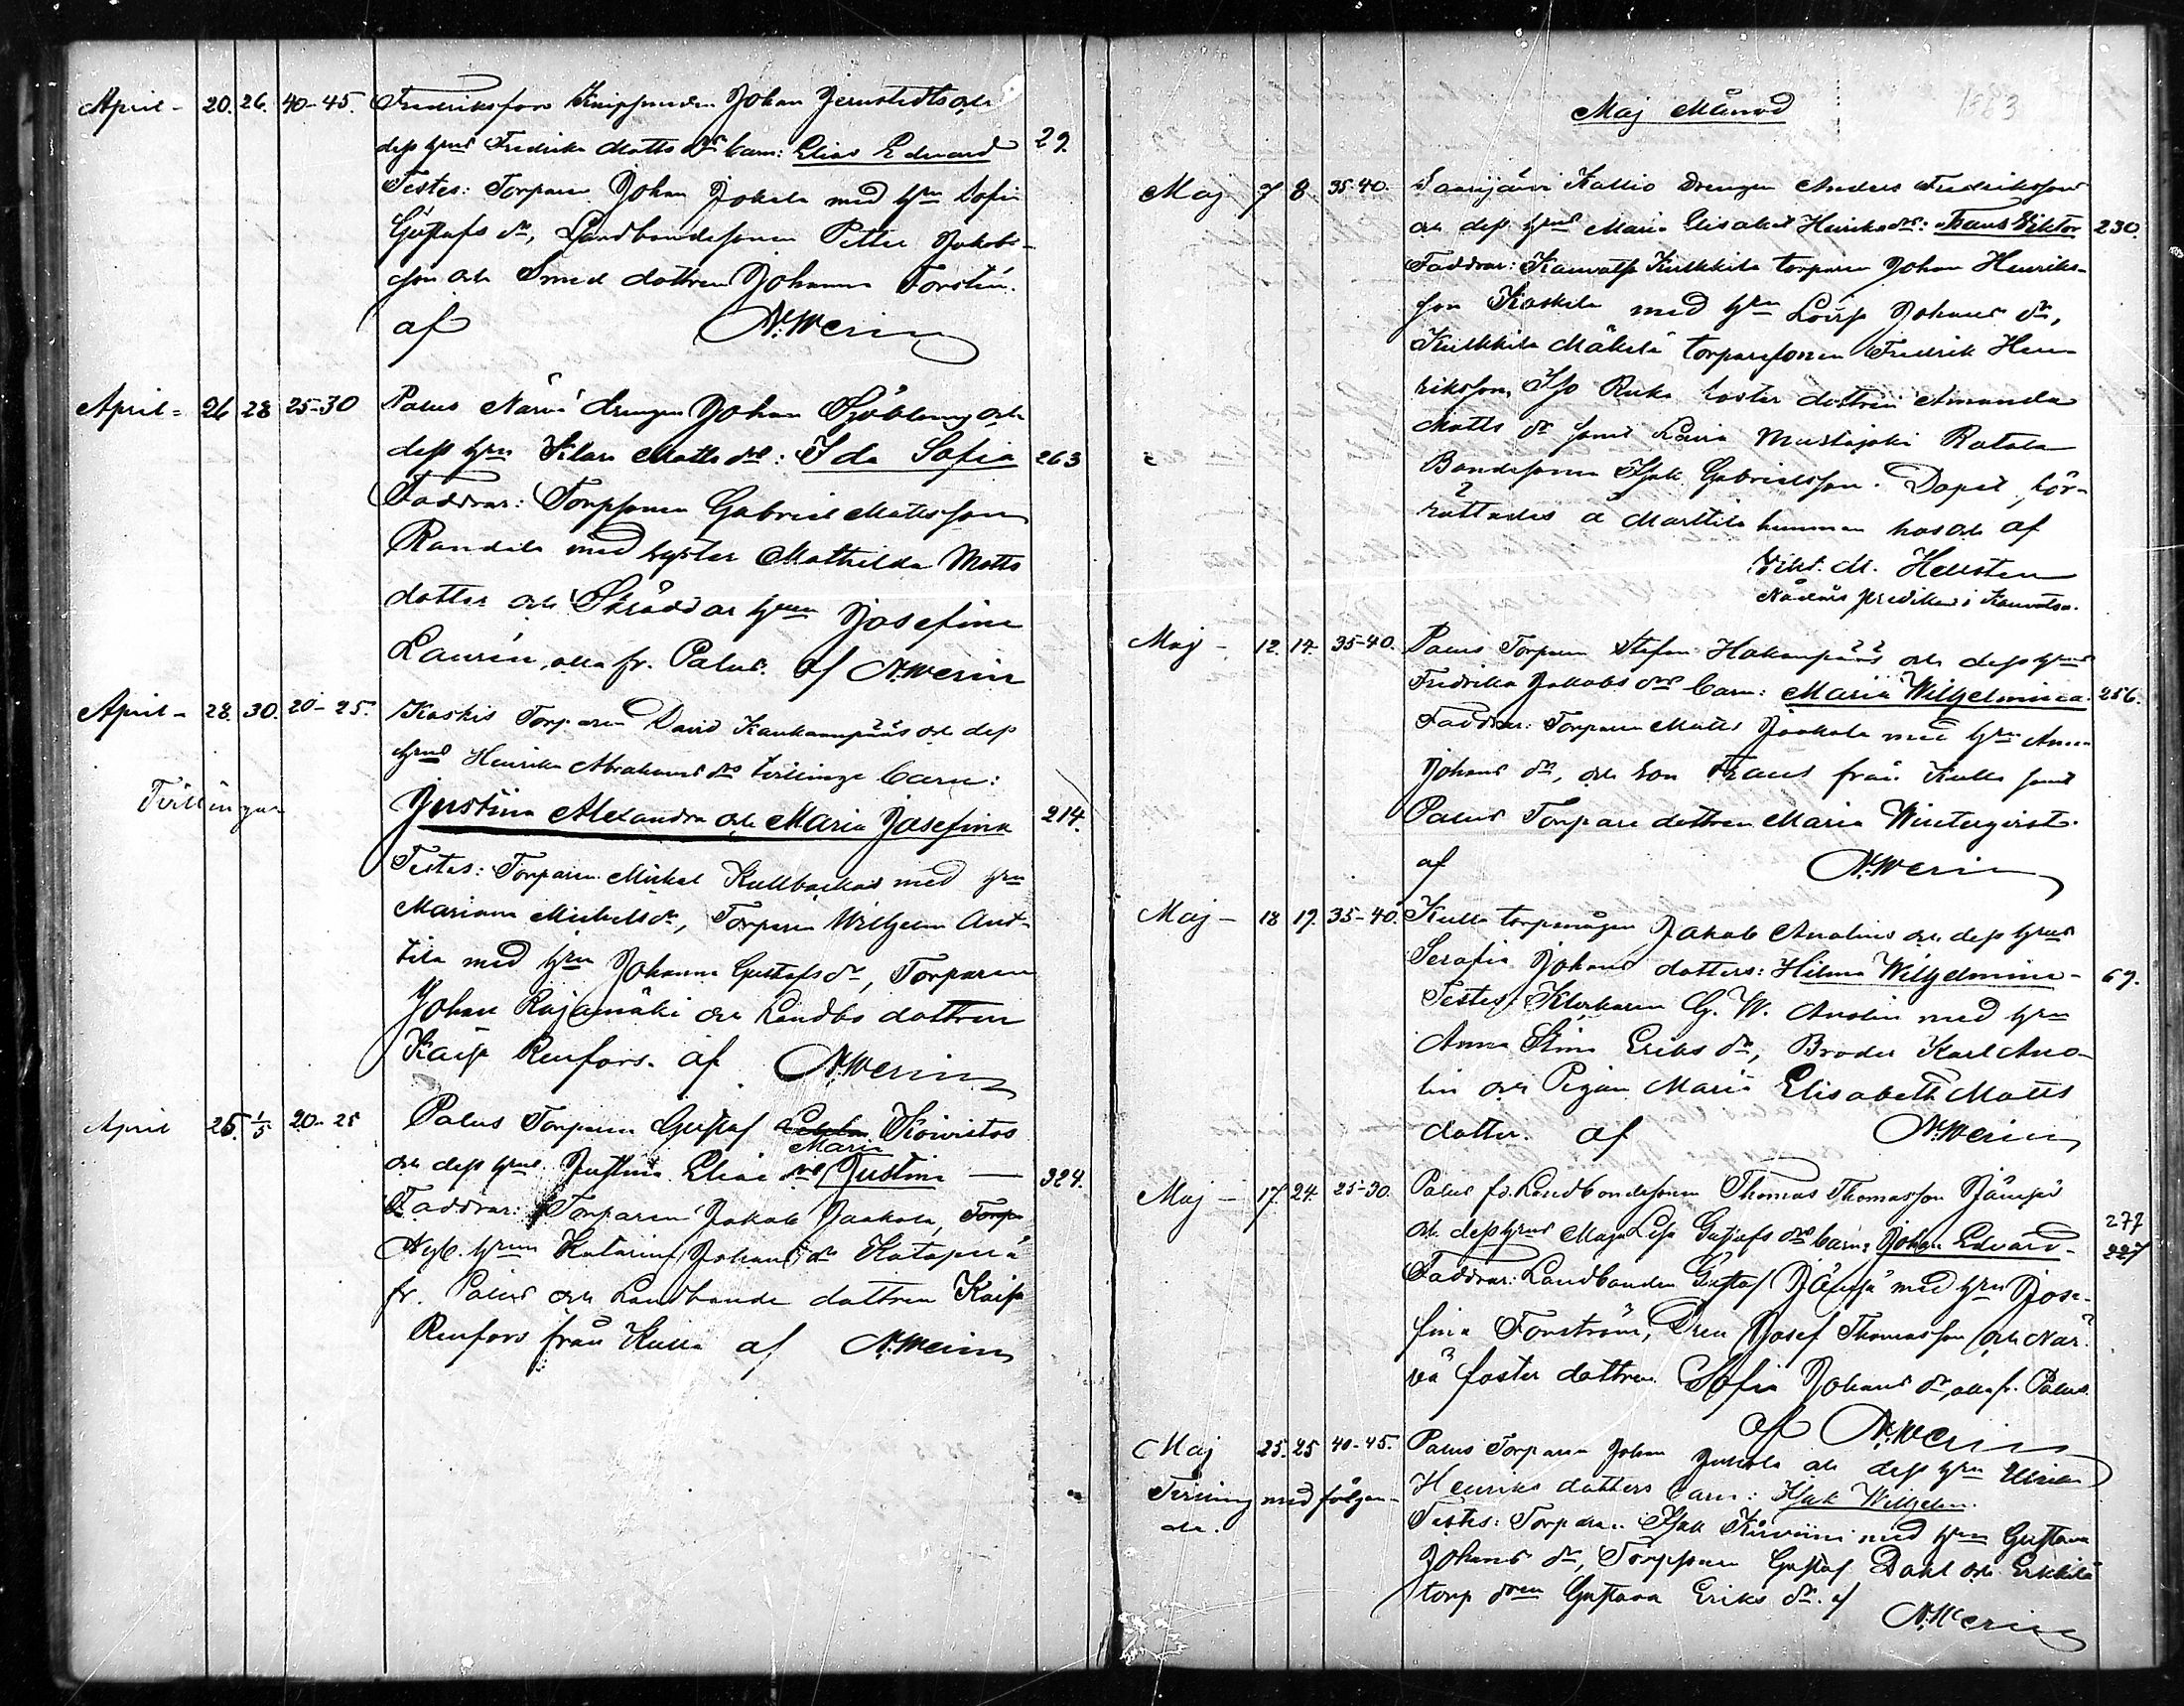 April - 20. 26. 40-45. Fredriksfors Knippsmeden Johan Jernstedts och
dess hrus Fredrika Matts drs barn: Elias Edvard 29.
Testes: Torparen Johan Jokela med hru Sofia
Gustafs dr, Landbondesonen Petter Jakobs-
son och Smed dottren Johanna Forstén.
af N. Merin
April - 26 28 25-30 Palus Närvä drengen Johan Sjöblom och
dess hru Klara Matts drs: Ida Sofia 263
Faddrar: Torpsonen Gabriel Mattsson
Randila med syster Mathilda Matts
dotter och Skräddar hrun Josefina
Laurén, alla fr. Palus. af N. Merin
April - 28. 30. 20-25. Koskis Torparen David Kankaanpääs och dess
hrus Henrika Abrahams drs tvillinge barn:
Tvillingar
Justina Alexandra och Maria Josefina 214.
Testes: Torparen Mickel Kullbackas med hru
Mariana Michels dr, Torparen Wilhelm Ant-
tila med hru Johanna Gustafs dr, Torparen
Johan Rajamäki och Landbo dottren
Kaisa Renfors. af N. Merin
April 25. 1/5 20-25 Palus Torparen Gustaf Koivistos
Maria
och dess hrus Justina Elias drs Justina 324.
Faddrar: Torparen Jakob Jaakola, Torp
Nyb. hrun Katarina Johans dr Katapää
fr. Palus och Landbonde dottren Kaisa
Renfors från Kulla af N. Merin
1883
Maj Månad
Maj 7 8 35-40. Saarijärvi Kallio Drengen Anders Fredrikssons
och dess hrus Maria Elisabet Henriks drs: Frans Viktor 230.
Faddrar: Kauvatsa Kulkkila torparen Johan Henriks-
son Koskela med hru Lovisa Johans dr,
Kulkkila Mäkelä torparesonen Fredrik Hen-
riksson, Iso Ruka foster dottren Amanda
Matts dr samt Lavia Mustajoki Ratala
Bondesonen Isak Gabrielsson. Dopet för-
rättades å Marttila hemman hos och af
Vikt. M. Hellsten
Nådårs predikant i Kauvatsa.
Maj - 12. 14. 35-40. Palus Torparen Stefan Hakanpääs och dess hrus
Fredrika Jakobs drs barn: Maria Wilhelmina. 256.
Faddrar: Torparen Matts Jaakola med hru Anna
Johans dr, och son Frans från Kulla samt
Palus Torpare dottren Maria Winterqvist.
af N. Merin
Maj - 18 19. 35-40. Kulla torpmågen Jakob Anolins och dess hrus
Serafia Johans dotters: Hilma Wilhelmina - 69.
Testes: Klockaren G. W. Anolin med hru
Anna Stina Eriks dr, Broder Karl Ano-
lin och Pigan Maria Elisabeth Matts
dotter. af N. Merin
Maj - 17. 24. 25-30. Palus fd. Landbondesonen Thomas Thomasson Jämsä
och dess hrus Maja Lisa Gustafs drs barn: Johan Edvard - 277
227
Faddrar: Landbonden Gustaf Jämsä med hru Jose-
fina Forström, Dren Josef Thomasson och När-
vä foster dottren Sofia Johans dr, alla fr. Palus.
af N. Merin
Maj 25. 25 40-45. Palus Torparen Johan Jukola och dess hru Ulrika
Tvilling med följan- Henriks dotters barn: Isak Wilhelm.
de.
Testes: Torparen Isak Kirviini med hru Gustava
Johans dr, Torpsonen Gustaf Dahl och Erkkilä
torp dren Gustava Eriks dr. af
N. Merin